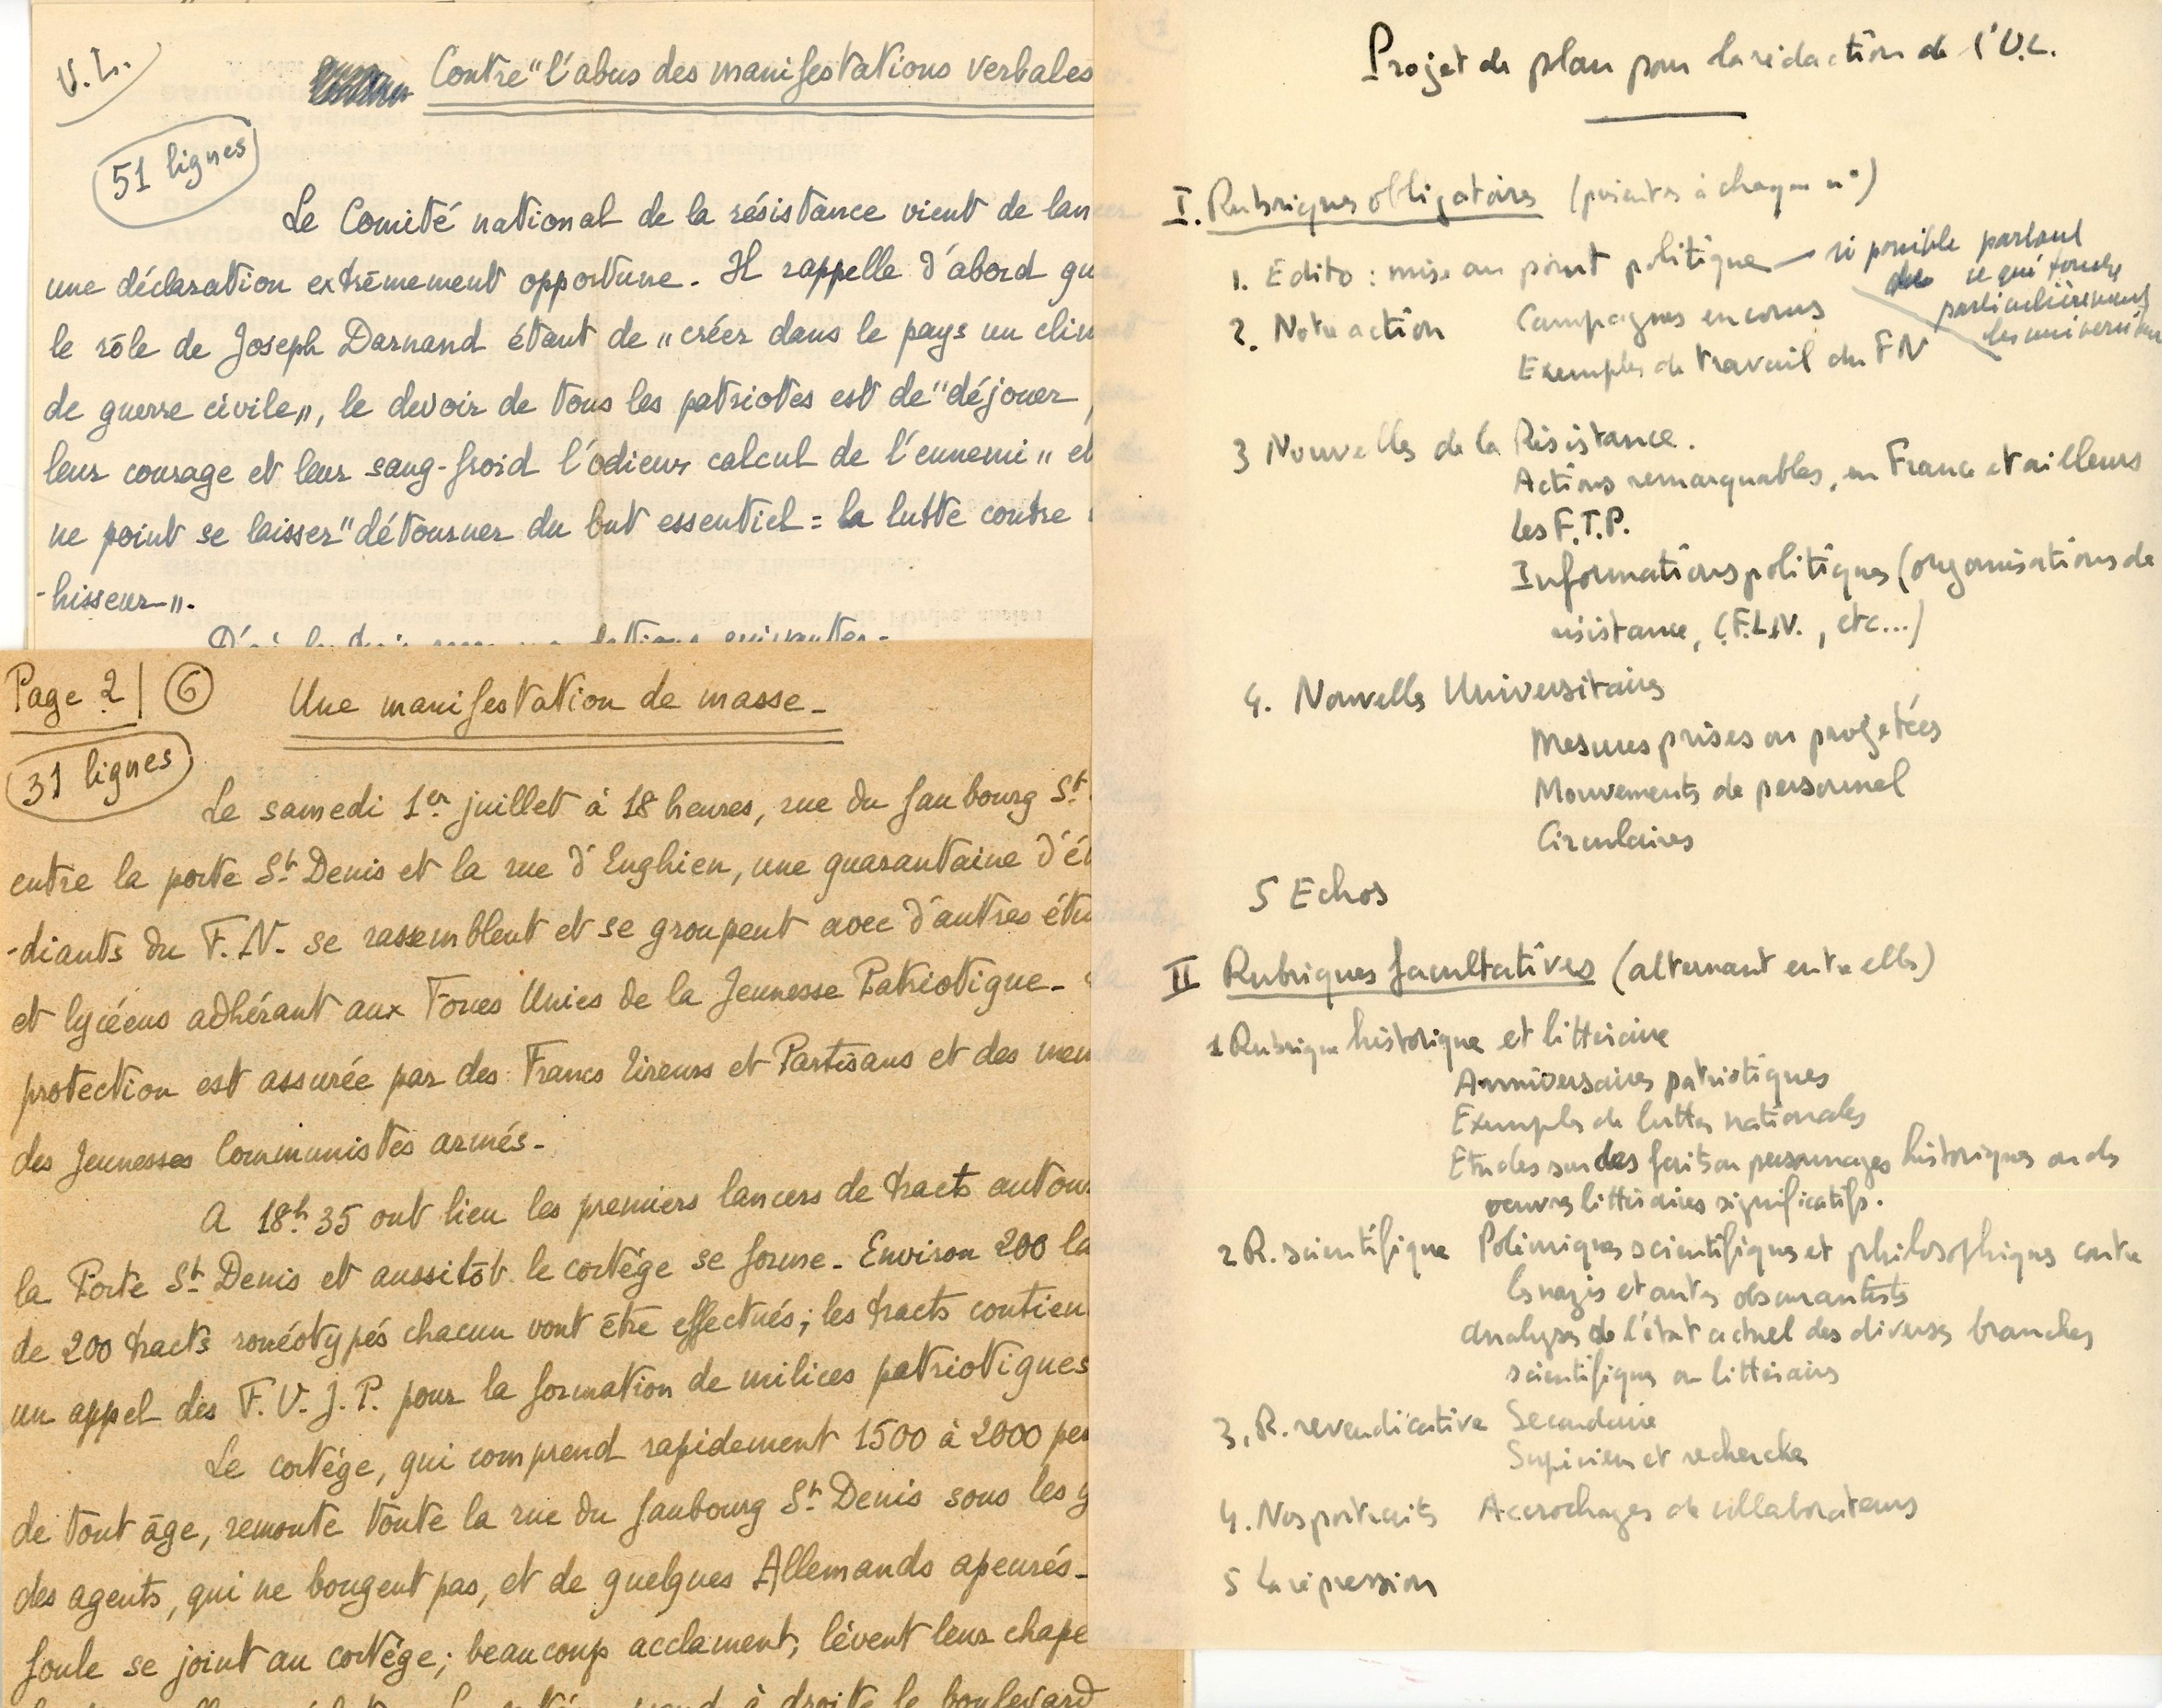 U.L.
Contre "l'abus des manifestations verbales
51 lignes
Le Comité national de la résistance vient de lan
une déclaration extrêmement opportune. Il rappelle d'abord qu
le rôle de Joseph Darnand étant de "créer dans le pays un clim
de guerre civile", le devoir de tous les patriotes est de "déjouer
leur courage et leur sang-froid l'odieux calcul de l'ennemi" et
ne point se laisser "détourner du but essentiel = la lutte contre
-hisseur".
Page 2 6
Une manifestation de masse-
31 lignes
Le samedi 1er juillet à 18 heures, rue du faubourg St
entre la porte St Denis et la rue d'Enghien, une quarantaine d'ét
-diants du F.N. se rassemblent et se groupent avec d'autres étu
et lycéens adhérant aux Forces Unies de la Jeunesse Patriotique-
protection est assurée par des Francs Tireurs et Partisans et des mem
des Jeunesses Communistes armés-
A 18h35 ont lieu les premiers lancers de tracts autour
la Porte St Denis et aussitôt le cortège se forme- Environ 200 la
de 200 tracts ronéotypés chacun vont être effectués; les tracts contien
un appel des F.U.J.P. pour la formation de milices patriotiques
Le cortège, qui comprend rapidement 1500 à 2000 per
de tout âge, remonte toute la rue du faubourg St Denis sous les y
des agents, qui ne bougent pas, et de quelques Allemands apeurés-
foule se joint au cortège; beaucoup acclament, lèvent leur chape
prend à droite le boulevard
Projet de plan pour la rédaction de l'U.L.
I. Rubriques obligatoires (présentes à chaque n°)
1. Edito : mise au point politique — si possible partant
de ce qui touche
particulièrement
les universitaires
2. Notre action Campagnes en cours
Exemples de travail du FN
3 Nouvelles de la Résistance.
Actions remarquables, en France et ailleurs
Les F.T.P.
Informations politiques (organisations de
résistance, C.F.L.N., etc...)
4. Nouvelles Universitaires
Mesures prises ou projetées
Mouvements de personnel
Circulaires
5 Echos
II Rubriques facultatives (alternant entre elles)
1 Rubrique historique et littéraire
Anniversaires patriotiques
Exemples de luttes nationales
Etudes sur des faits ou personnages historiques ou des
oeuvres littéraires significatifs.
2 R. scientifique Polémiques scientifiques et philosophiques contre
les nazis et autres obscurantistes
Analyses de l'état actuel des diverses branches
scientifiques ou littéraires
3. R. revendicative Secondaire
Supérieur et recherche
4. Nos portraits Accrochages de collaborateurs
5 La répression